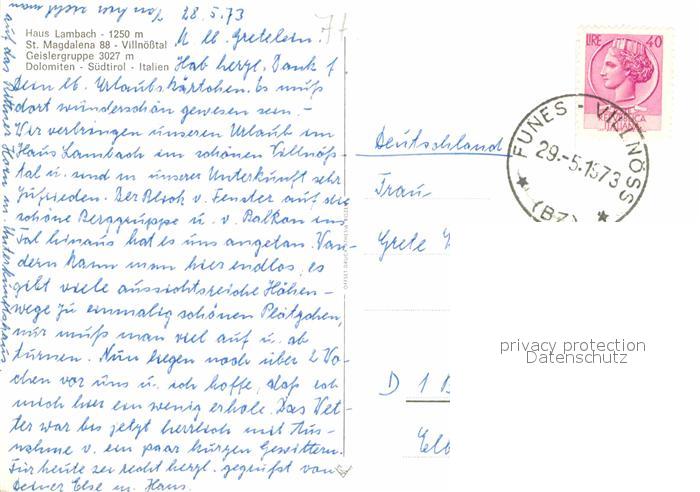 von hier sieht man
auf das Rittner Horn m. Unterkunftshaus.
28.5.73
Haus Lambach - 1250 m
St. Magdalena 88 - Villnößtal
Geislergruppe 3027 m
Dolomiten - Südtirol - Italien
M. lb. Gretelein.
Hab herzl. Dank f.
Dein lb. Urlaubskärtchen. Es muß
dort wunderschön gewesen sein. -
Wir verbringen unseren Urlaub im
Haus Lambach im schönen Villnöß-
tal u. sind m. unserer Unterkunft sehr
zufrieden. Der Blick v. Fenster auf die
schöne Berggruppe u. v. Balkon ins
Tal hinaus hat es uns angetan. Wan-
dern kann man hier endlos, es
gibt viele aussichtsreiche Höhen-
wege zu einmalig schönen Plätzchen,
nur muß man viel auf u. ab
turnen. Nun liegen noch über 2 Wo-
chen vor uns u. ich hoffe, daß ich
mich hier ein wenig erhole. Das Wet-
ter war bis jetzt herrlich mit Aus-
nahme v. ein paar kurzen Gewittern.
Für heute sei recht herzl. gegrüßt von
Deiner Else m. Hans.
LIRE 40
FUNES - VILLNÖSS
29.-5.1973
(BZ)
Deutschland
Frau
Grete
D 1 B
privacy protection
Datenschutz